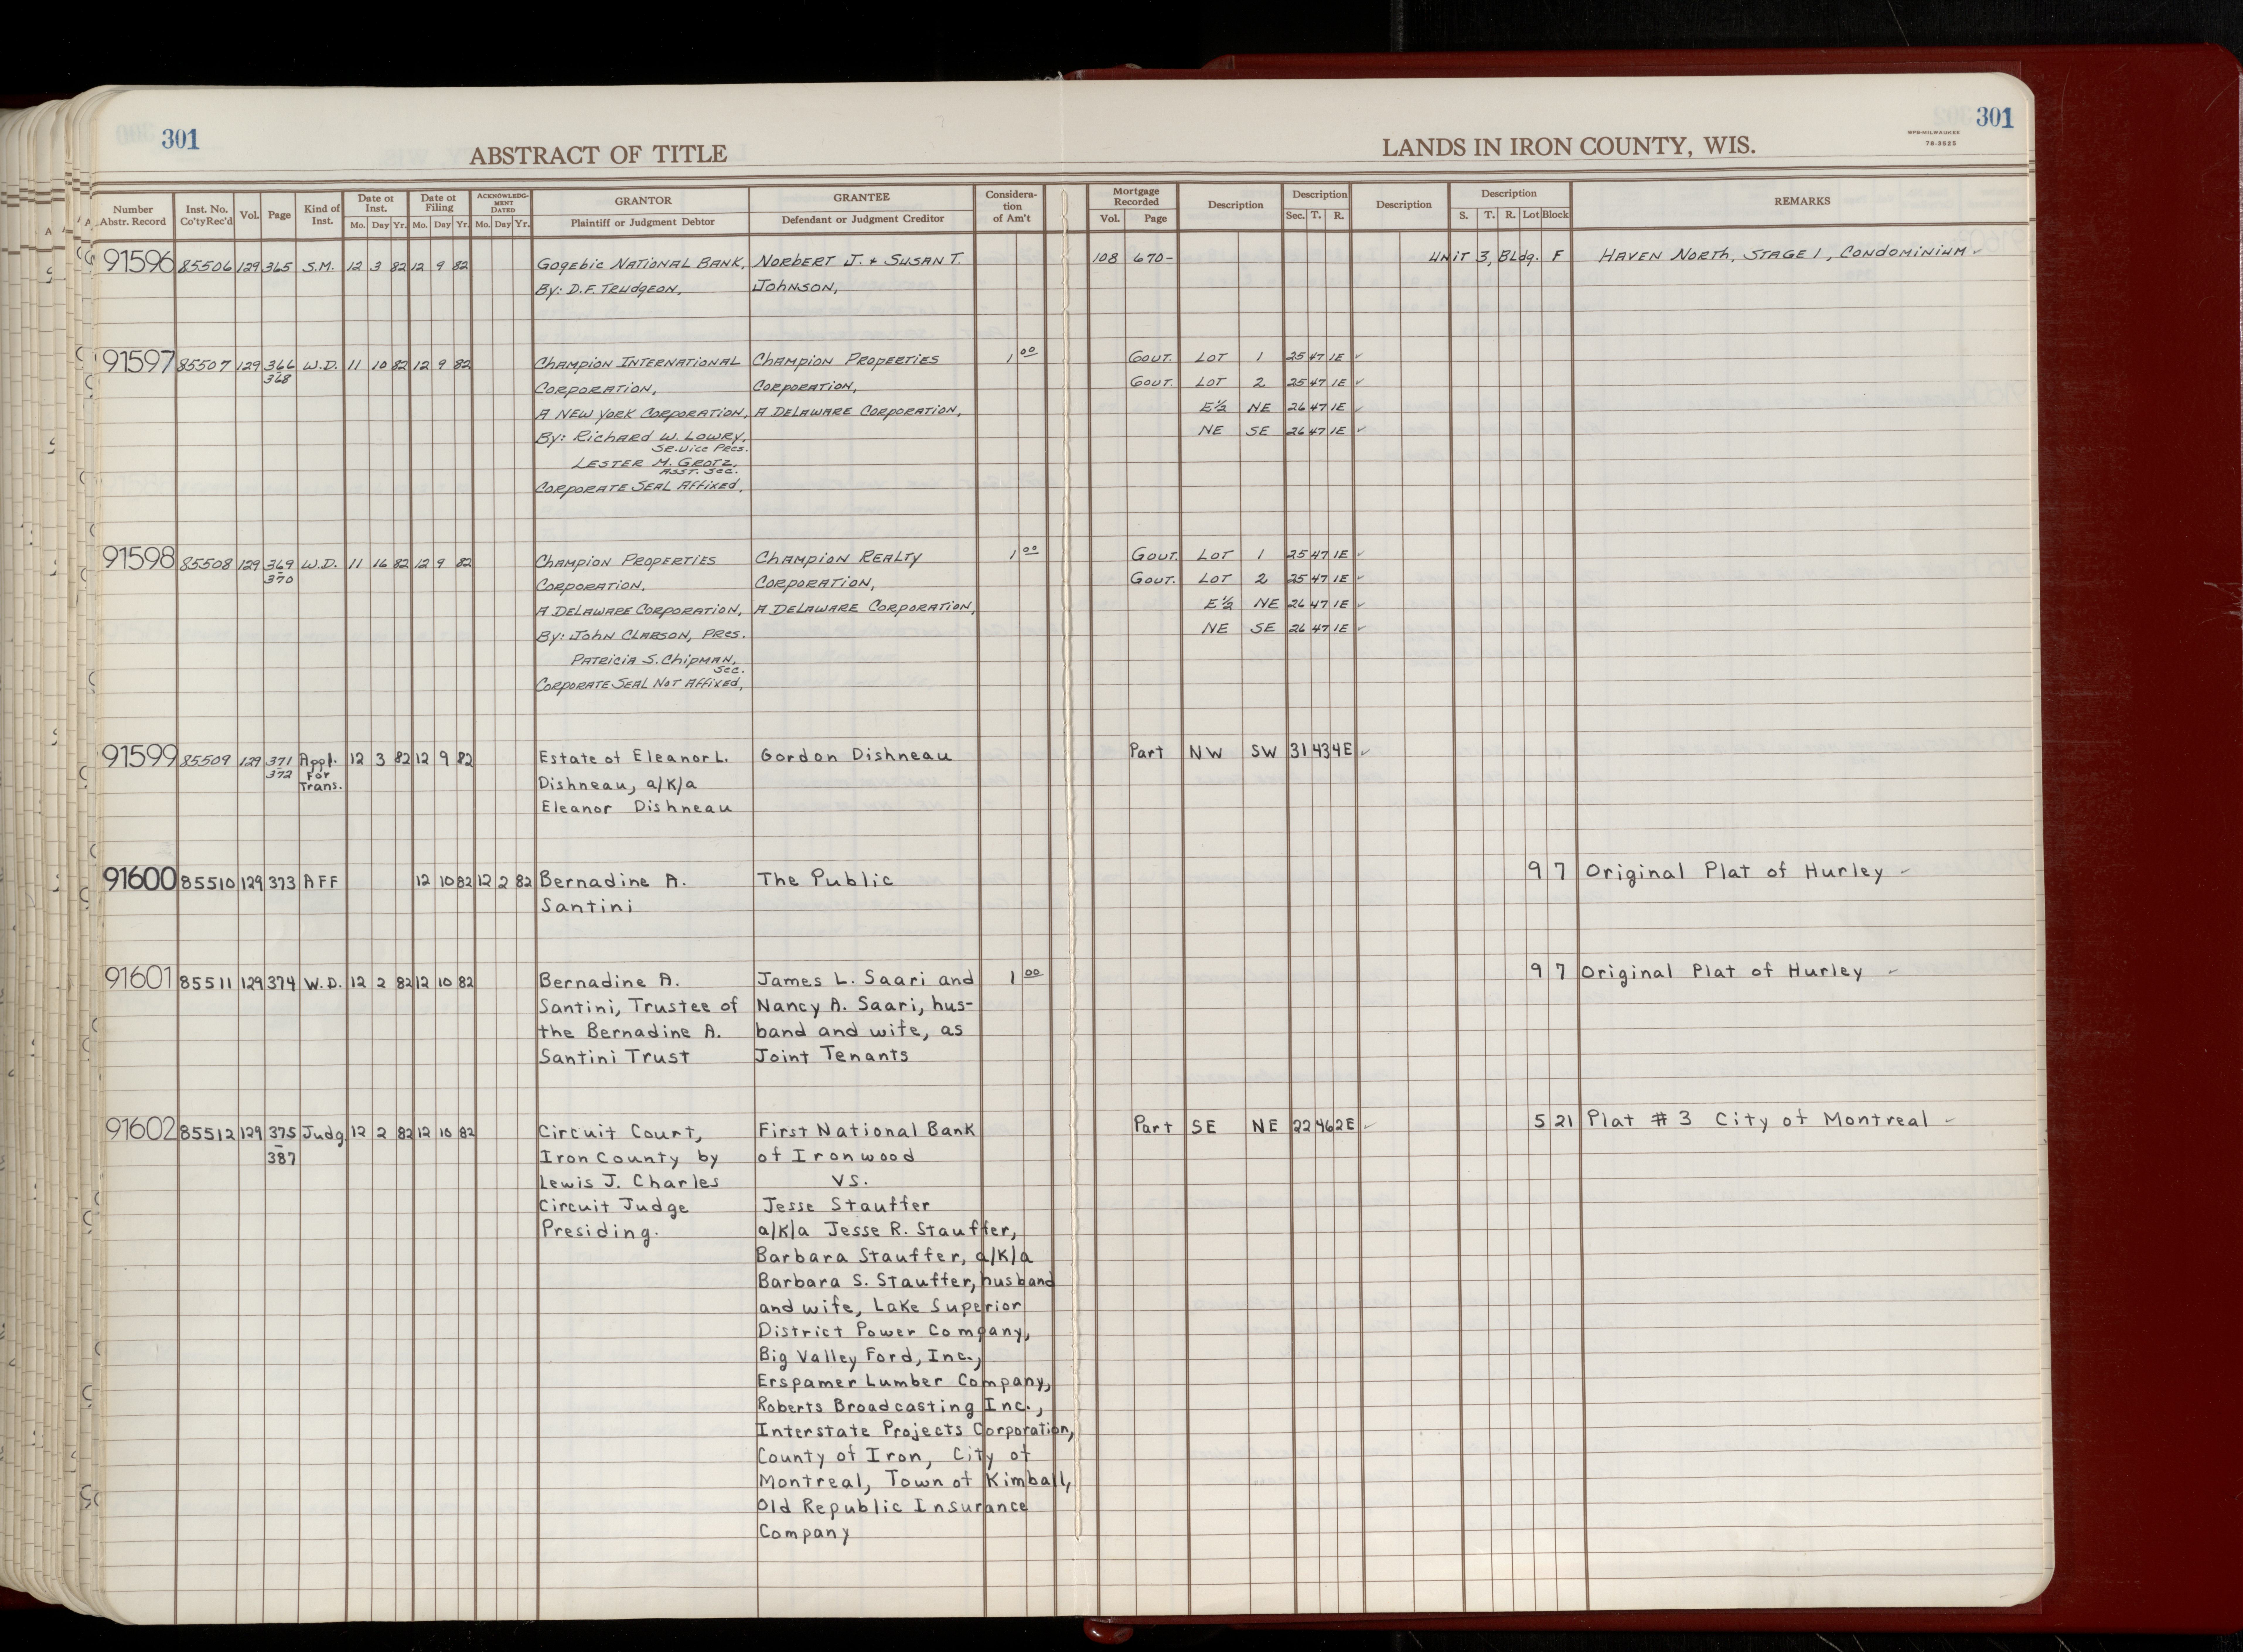 301
301
ABSTRACT OF TITLE
LANDS IN IRON COUNTY, WIS.
WPB-MILWAUKEE
78-3525
Number Abstr. Record
Inst. No. Co'ty Rec'd
Vol.
Page
Kind of Inst.
Date of Inst. Mo. Day Yr.
Date of Filing Mo. Day Yr.
ACKNOWLEDGMENT DATED Mo. Day Yr.
GRANTOR
Plaintiff or Judgment Debtor
GRANTEE
Defendant or Judgment Creditor
Consideration of Am't
Mortgage Recorded Vol. Page
Description
Description Sec. T. R.
Description
Description S. T. R. Lot Block
REMARKS
91596 85506 129 365 S.M. 12 3 82 12 9 82 Gogebic National Bank, Norbert J. & Susan T. 108 670- Unit 3, Bldg. F Haven North, Stage 1, Condominium
By: D.F. Trudgeon, Johnson,
91597 85507 129 366 W.D. 11 10 82 12 9 82 Champion International Champion Properties 1 00 Gout. Lot 1 25 47 1E
368
Corporation, Corporation, Gout. Lot 2 25 47 1E
A New York Corporation, A Delaware Corporation, E½ NE 26 47 1E
By: Richard W. Lowry, NE SE 26 47 1E
Sr. Vice Pres.
Lester M. Grotz,
Asst. Sec.
Corporate Seal Affixed,
91598 85508 129 369 W.D. 11 16 82 12 9 82 Champion Properties Champion Realty 1 00 Gout. Lot 1 25 47 1E
370
Corporation, Corporation, Gout. Lot 2 25 47 1E
A Delaware Corporation, A Delaware Corporation, E½ NE 26 47 1E
By: John Clabson, Pres. NE SE 26 47 1E
Patricia S. Chipman,
Sec.
Corporate Seal Not Affixed,
91599 85509 129 371 Appl. 12 3 82 12 9 82 Estate of Eleanor L. Gordon Dishneau Part NW SW 31 43 4E
372 For
Trans.
Dishneau, a/k/a
Eleanor Dishneau
91600 85510 129 373 AFF 12 10 82 12 2 82 Bernadine A. The Public 9 7 Original Plat of Hurley
Santini
91601 85511 129 374 W.D. 12 2 82 12 10 82 Bernadine A. James L. Saari and 1 00 9 7 Original Plat of Hurley
Santini, Trustee of Nancy A. Saari, hus-
the Bernadine A. band and wife, as
Santini Trust Joint Tenants
91602 85512 129 375 Judg 12 2 82 12 10 82 Circuit Court, First National Bank Part SE NE 22 46 2E 5 21 Plat # 3 City of Montreal
387 Iron County by of Ironwood
Lewis J. Charles vs.
Circuit Judge Jesse Stauffer
Presiding. a/k/a Jesse R. Stauffer,
Barbara Stauffer, a/k/a
Barbara S. Stauffer, husband
and wife, Lake Superior
District Power Company,
Big Valley Ford, Inc.,
Erspamer Lumber Company,
Roberts Broadcasting Inc.,
Interstate Projects Corporation,
County of Iron, City of
Montreal, Town of Kimball,
Old Republic Insurance
Company